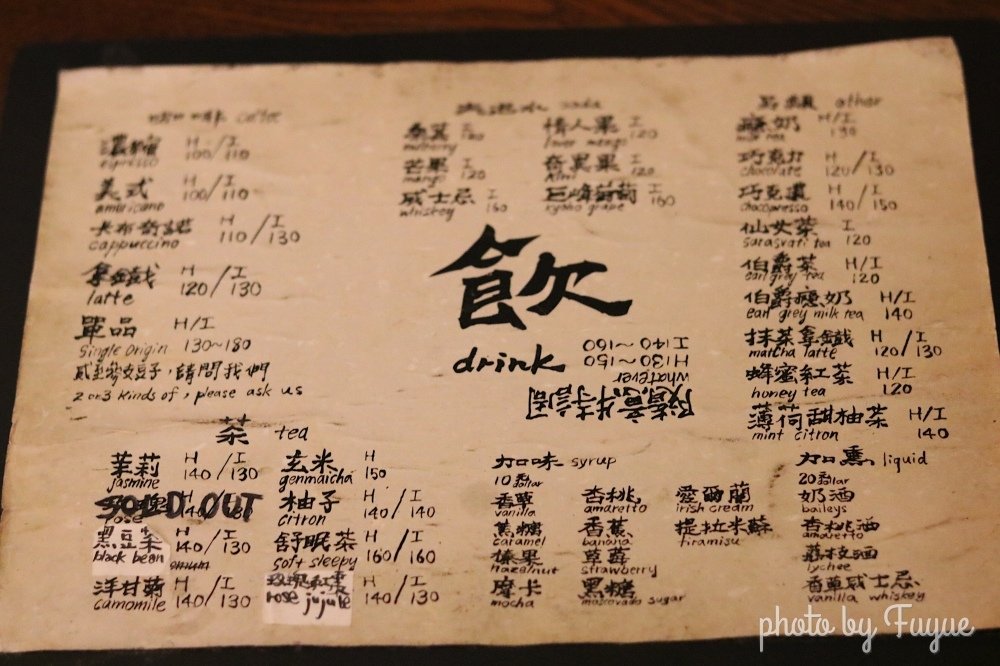 咖啡 coffee
濃縮 H I
espresso 100/110
美式 H I
americano 100/110
卡布奇諾 H I
cappuccino 110/130
拿鐵 H I
latte 120/130
單品 H/I
single origin 130~180
貳至參支豆子，請問我們
2 or 3 kinds of , please ask us
氣泡水 soda
桑葚 I
mulberry 120
情人果 I
lover mango 120
芒果 I
mango 120
奇異果 I
kiwi 120
威士忌 I
whiskey 160
巨峰葡萄 I
kyoho grape 160
飲
drink
隨意特調
whatever
H130~150
I140~160
另類 other
癮奶 H/I
milk tea 130
巧克力 H/I
chocolate 120/130
巧克濃 H/I
chocopresso 140/150
仙女茶 I
sarasvati tea 120
伯爵茶 H/I
earl grey tea 120
伯爵癮奶 H/I
earl grey milk tea 140
抹茶拿鐵 H/I
matcha latte 120/130
蜂蜜紅茶 H/I
honey tea 120
薄荷甜柚茶 H/I
mint citron 140
茶 tea
茉莉 H I
jasmine 140/130
SOLD OUT
rose 140
黑豆茶 H I
black bean 140/130
洋甘菊 H I
camomile 140/130
玄米 H
genmaicha 150
柚子 H I
citron 140/140
舒眠茶 H I
soft sleepy 160/160
玫瑰紅棗 H I
rose jujube 140/130
加味 syrup
10 dollar
香草
vanilla
杏桃
amaretto
愛爾蘭
irish cream
焦糖
caramel
香蕉
banana
提拉米蘇
tiramisu
榛果
hazelnut
草莓
strawberry
摩卡
mocha
黑糖
mascovado sugar
加熏 liquid
20 dollar
奶酒
baileys
杏桃酒
amaretto
荔枝酒
lychee
香草威士忌
vanilla whiskey
photo by Fuyue